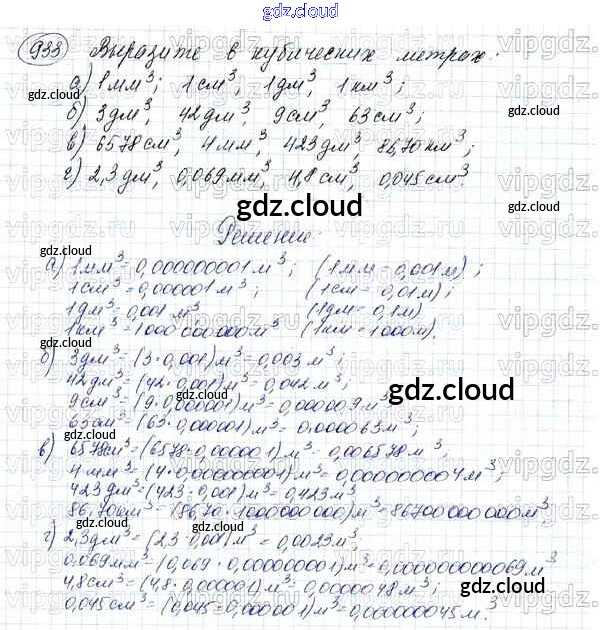 gdz.cloud
933 Выразите в кубических метрах:
а) 1 мм³; 1 см³; 1 дм³; 1 км³;
б) 3 дм³, 42 дм³, 9 см³, 63 см³;
в) 6578 см³, 4 мм³, 423 дм³, 86,70 км³;
г) 2,3 дм³, 0,069 мм³, 4,8 см³, 0,045 см³.
gdz.cloud
Решение:
а) 1 мм³ = 0,000000001 м³; (1 мм = 0,001 м);
1 см³ = 0,000001 м³; (1 см = 0,01 м);
1 дм³ = 0,001 м³ (1 дм = 0,1 м)
1 км³ = 1000 000 000 м³ (1 км = 1000 м).
б) 3 дм³ = (3 · 0,001) м³ = 0,003 м³;
42 дм³ = (42 · 0,001) м³ = 0,042 м³;
9 см³ = (9 · 0,000001) м³ = 0,000009 м³
63 см³ = (63 · 0,000001) м³ = 0,000063 м³;
в) 6578 см³ = (6578 · 0,000001) м³ = 0,006578 м³;
4 мм³ = (4 · 0,000000001) м³ = 0,000000004 м³;
423 дм³ = (423 · 0,001) м³ = 0,423 м³
86,70 км³ = (86,70 · 1000000000) м³ = 86700 000 000 м³.
г) 2,3 дм³ = (2,3 · 0,001) м³ = 0,0023 м³;
0,069 мм³ = (0,069 · 0,000000001) м³ = 0,000000000069 м³
4,8 см³ = (4,8 · 0,000001) м³ = 0,0000048 м³;
0,045 см³ = (0,045 · 0,000001) м³ = 0,000000045 м³.